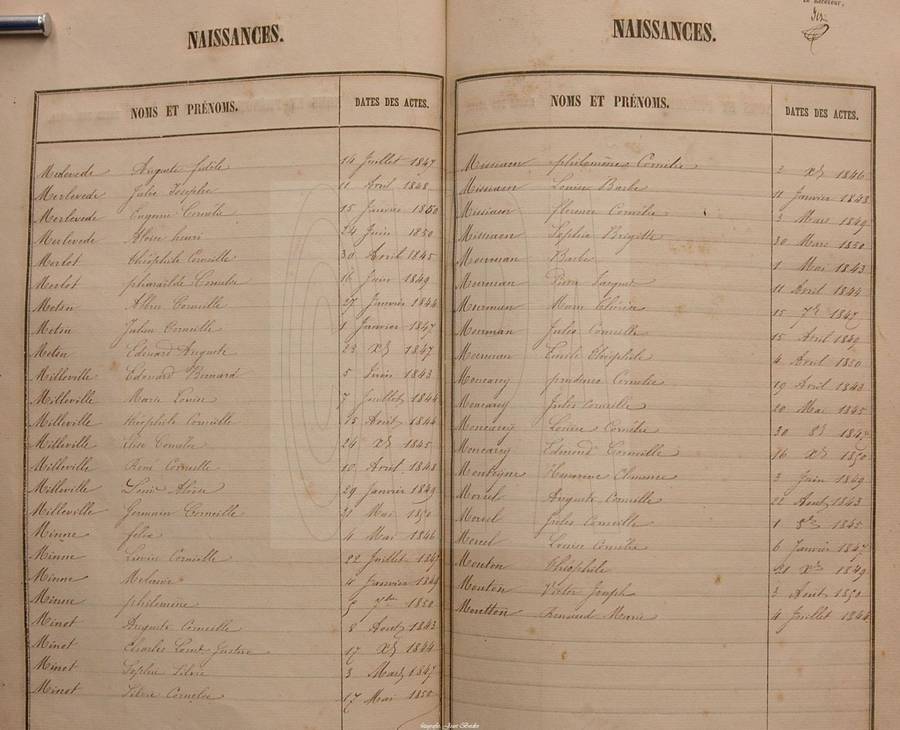 NAISSANCES.
NOMS ET PRÉNOMS. DATES DES ACTES.
Merlevede Auguste fidele 14 Juillet 1847
Merlevede Julie Josephe 11 Avril 1848
Merlevede Eugenie Cornélie 15 Janvier 1850
Merlevede Aloïse henri 24 Juin 1850
Merlot théophile Corneille 30 Avril 1845
Merlot pharaïlde Cornelie 16 Juin 1849
Metsu Albin Corneille 27 Janvier 1844
Metsu Julien Corneille 1 Janvier 1847
Metsu Edouard Auguste 23 Xbre 1847
Milleville Edouard Bernard 5 Juin 1843
Milleville Marie Louise 7 Juillet 1844
Milleville théophile Corneille 15 Aout 1844
Milleville Elise Cornélie 24 Xbre 1845
Milleville René Corneille 10 Avril 1848
Milleville Louis Aloïse 29 Janvier 1849
Milleville Germain Corneille 21 Mai 1850
Minne félix 4 Mai 1846
Minne Louis Corneille 22 Juillet 1847
Minne Melanie 4 Janvier 1849
Minne philomène 5 7bre 1850
Minet Auguste Corneille 8 Aout 1843
Minet Charles Louis Justin 17 Xbre 1844
Minet Sophie Silvie 3 Mars 1847
Minet Silvie Cornelie 17 Mai 1850
NAISSANCES.
NOMS ET PRÉNOMS. DATES DES ACTES.
Missiaen philomène Cornélie 2 Xbre 1846
Missiaen Louise Barbe 11 Janvier 1848
Missiaen florence Cornélie 3 Mars 1849
Missiaen Sophie Brigitte 30 Mars 1850
Moerman Barbe 1 Mai 1843
Moerman Pierre Jacques 11 Avril 1844
Moerman Marie 15 7bre 1847
Moerman Jules Corneille 15 Avril 1849
Moerman Emile théophile 4 Avril 1850
Moncarey prudence Cornelie 19 Avril 1843
Moncarey Jules Corneille 20 Mai 1845
Moncarey Louise Cornélie 30 8bre 1847
Moncarey Edmond Corneille 16 Xbre 1850
Monteyne Clemence 3 Juin 1849
Morel Auguste Corneille 22 Aout 1843
Morel Jules Corneille 1 1845
Morel Louise Cornélie 6 Janvier 1847
Mouton théophile 21 Xbre 1849
Mouton Victor Joseph 3 Aout 1850
Moutton Marie 4 Juillet 1844